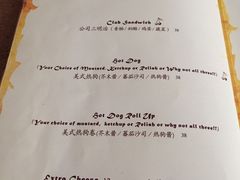 Club Sandwich
公司三明治（香肠/奶酪/鸡蛋/蔬菜）38
Hot Dog
(Your Choice of Mustard, Ketchup or Relish or Why not all three!!)
美式热狗(芥末酱/蕃茄沙司/热狗酱) 38
Hot Dog Roll Up
(Your choice of mustard, ketchup or Relish or why not all three!!)
美式热狗卷(芥木酱/蕃茄沙司/热狗酱) 38
Extra Cheese